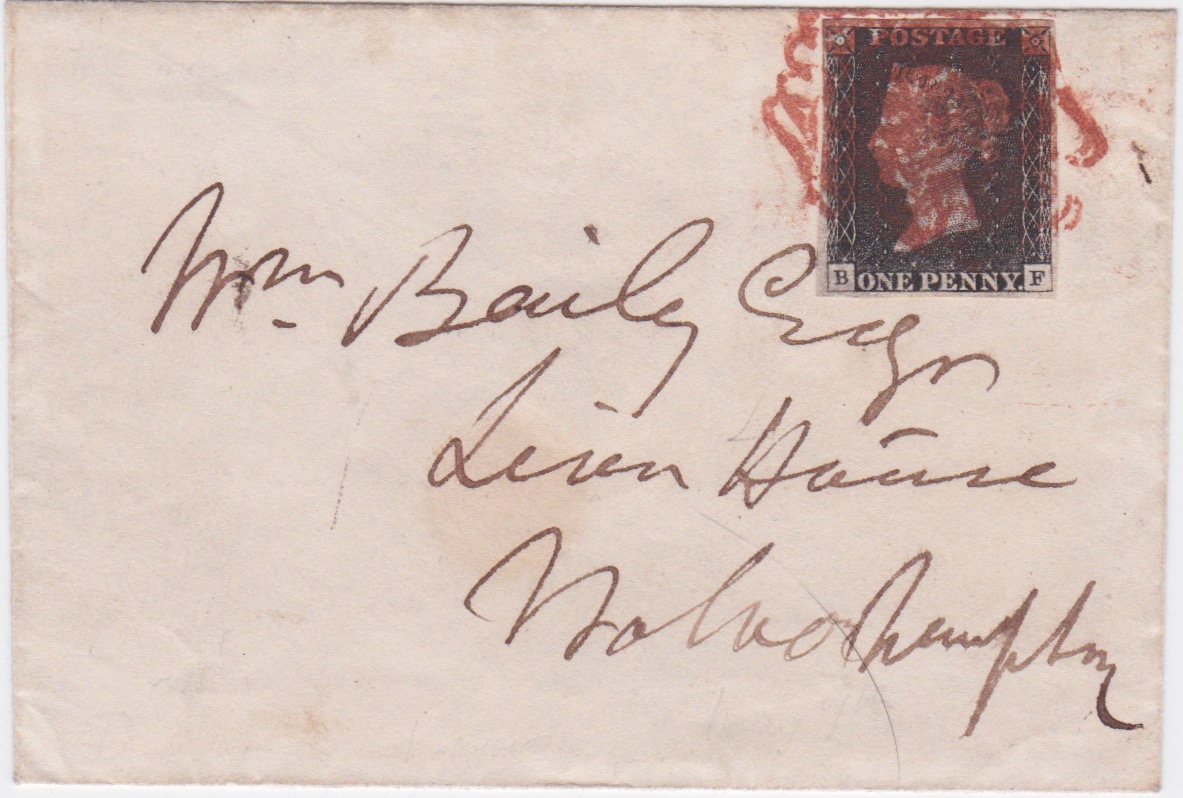 POSTAGE
B ONE PENNY. F
Wm Baily Esqr
Lion House
Wolverhampton